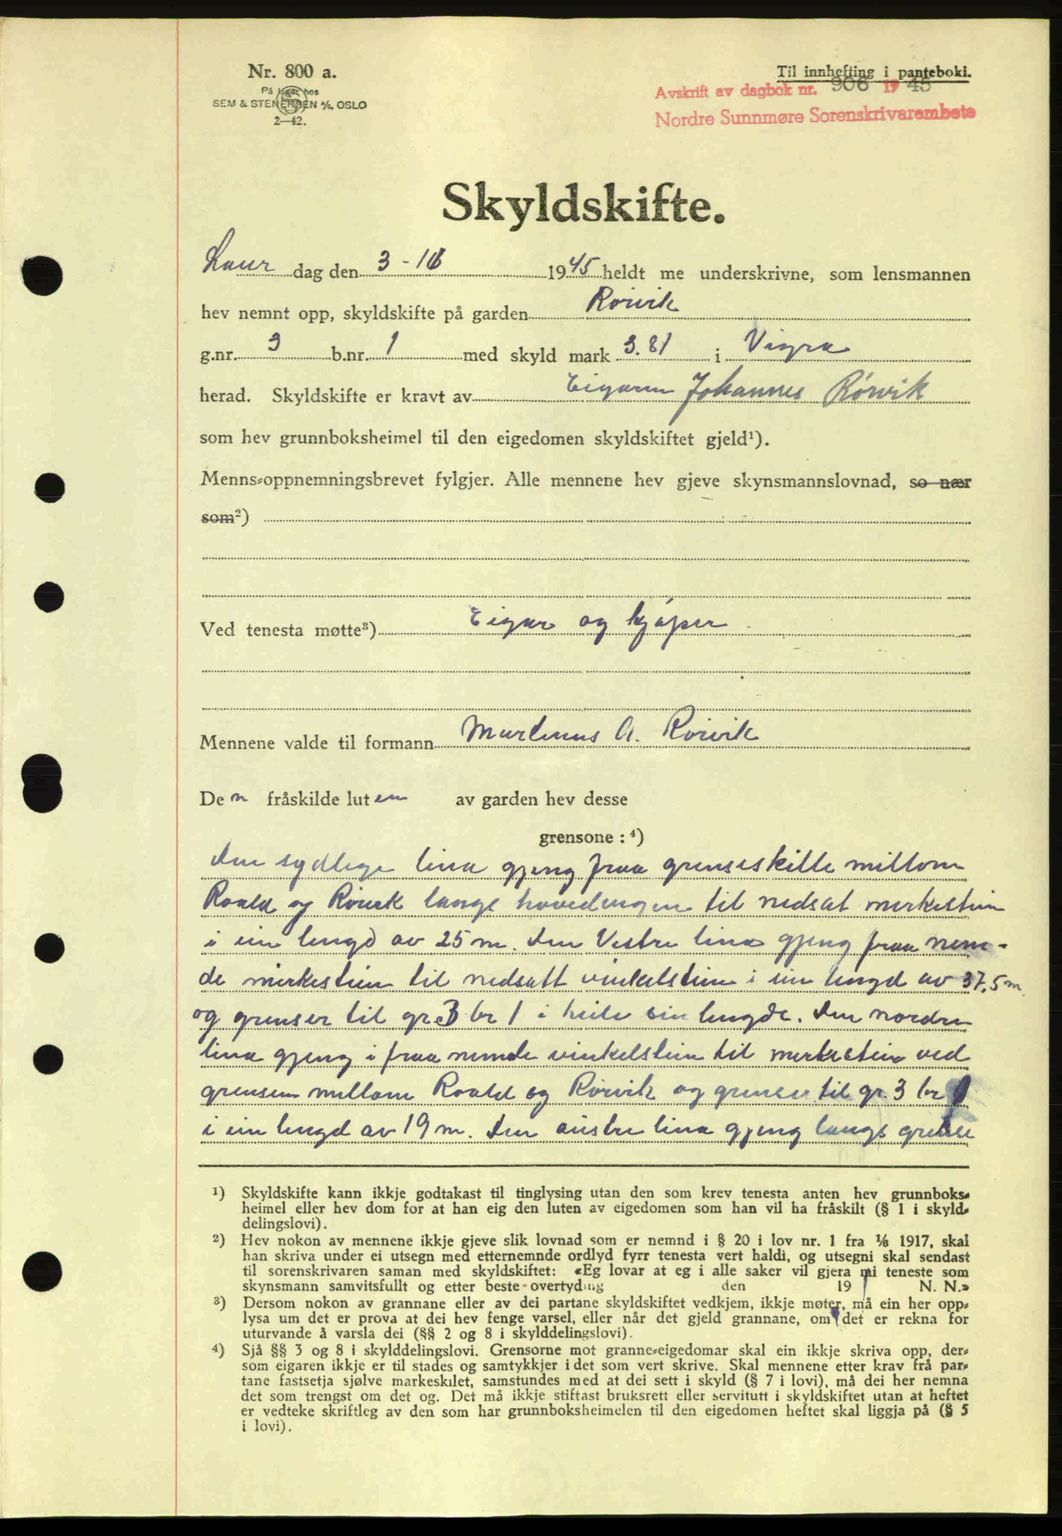 Nr. 800 a.
På lager hos
SEM & STENERSEN A/S, OSLO
2—42.
Til innhefting i panteboki.
Avskrift av dagbok nr. 906 1945
Nordre Sunnmøre Sorenskrivarembete
Skyldskifte.
Laur dag den 3-10 1945 heldt me underskrivne, som lensmannen
hev nemnt opp, skyldskifte på garden Rörvik
g.nr. 3 b.nr. 1 med skyld mark 3.81 i Vigra
herad. Skyldskifte er kravt av Eigaren Johannes Rörvik
som hev grunnboksheimel til den eigedomen skyldskiftet gjeld¹).
Menns-oppnemningsbrevet fylgjer. Alle mennene hev gjeve skynsmannslovnad, so nær
som²)
Ved tenesta møtte³) Eigar og kjøper
Mennene valde til formann Martinus A. Rörvik
Den fråskilde luten av garden hev desse
grensone : ⁴)
den sydlege lina gjeng fraa grenseskille millom
Roald og Rörvik langs hovedvegen til nedsat merkestein
i ein lengd av 25 m. den Vestre lina gjeng fraa nem-
de merkestein til nedsatt vinkelstein i ein lengd av 37,5 m
og grenser til gr 3 br 1 i heile sin lengde. den nordre
lina gjeng i fraa nemde vinkelstein til merkestein ved
grensen millom Roald og Rörvik og grenser til gr. 3 br 1
i ein lengd av 19 m. den austre lina gjeng langs grense
¹) Skyldskifte kann ikkje godtakast til tinglysing utan den som krev tenesta anten hev grunnboks-
heimel eller hev dom for at han eig den luten av eigedomen som han vil ha fråskilt (§ 1 i skyld-
delingslovi).
²) Hev nokon av mennene ikkje gjeve slik lovnad som er nemnd i § 20 i lov nr. 1 fra 1/6 1917, skal
han skriva under ei utsegn med etternemnde ordlyd fyrr tenesta vert haldi, og utsegni skal sendast
til sorenskrivaren saman med skyldskiftet: «Eg lovar at eg i alle saker vil gjera mi teneste som
skynsmann samvitsfullt og etter beste overtyding den 19 N. N.»
³) Dersom nokon av grannane eller av dei partane skyldskiftet vedkjem, ikkje møter, må ein her opp-
lysa um det er prova at dei hev fenge varsel, eller når det gjeld grannane, om det er rekna for
uturvande å varsla dei (§§ 2 og 8 i skylddelingslovi).
⁴) Sjå §§ 3 og 8 i skylddelingslovi. Grensorne mot granne-eigedomar skal ein ikkje skriva opp, der-
som eigaren ikkje er til stades og samtykkjer i det som vert skrive. Skal mennene etter krav frå par-
tane fastsetja sjølve markeskilet, samstundes med at dei sett i skyld (§ 7 i lovi), må dei her nemna
det som trengst om det og. Det må ikkje stiftast bruksrett eller servitutt i skyldskiftet utan at heftet
er vedteke skriftleg av den som har grunnboksheimelen til den eigedomen heftet skal liggja på (§ 5
i lovi).